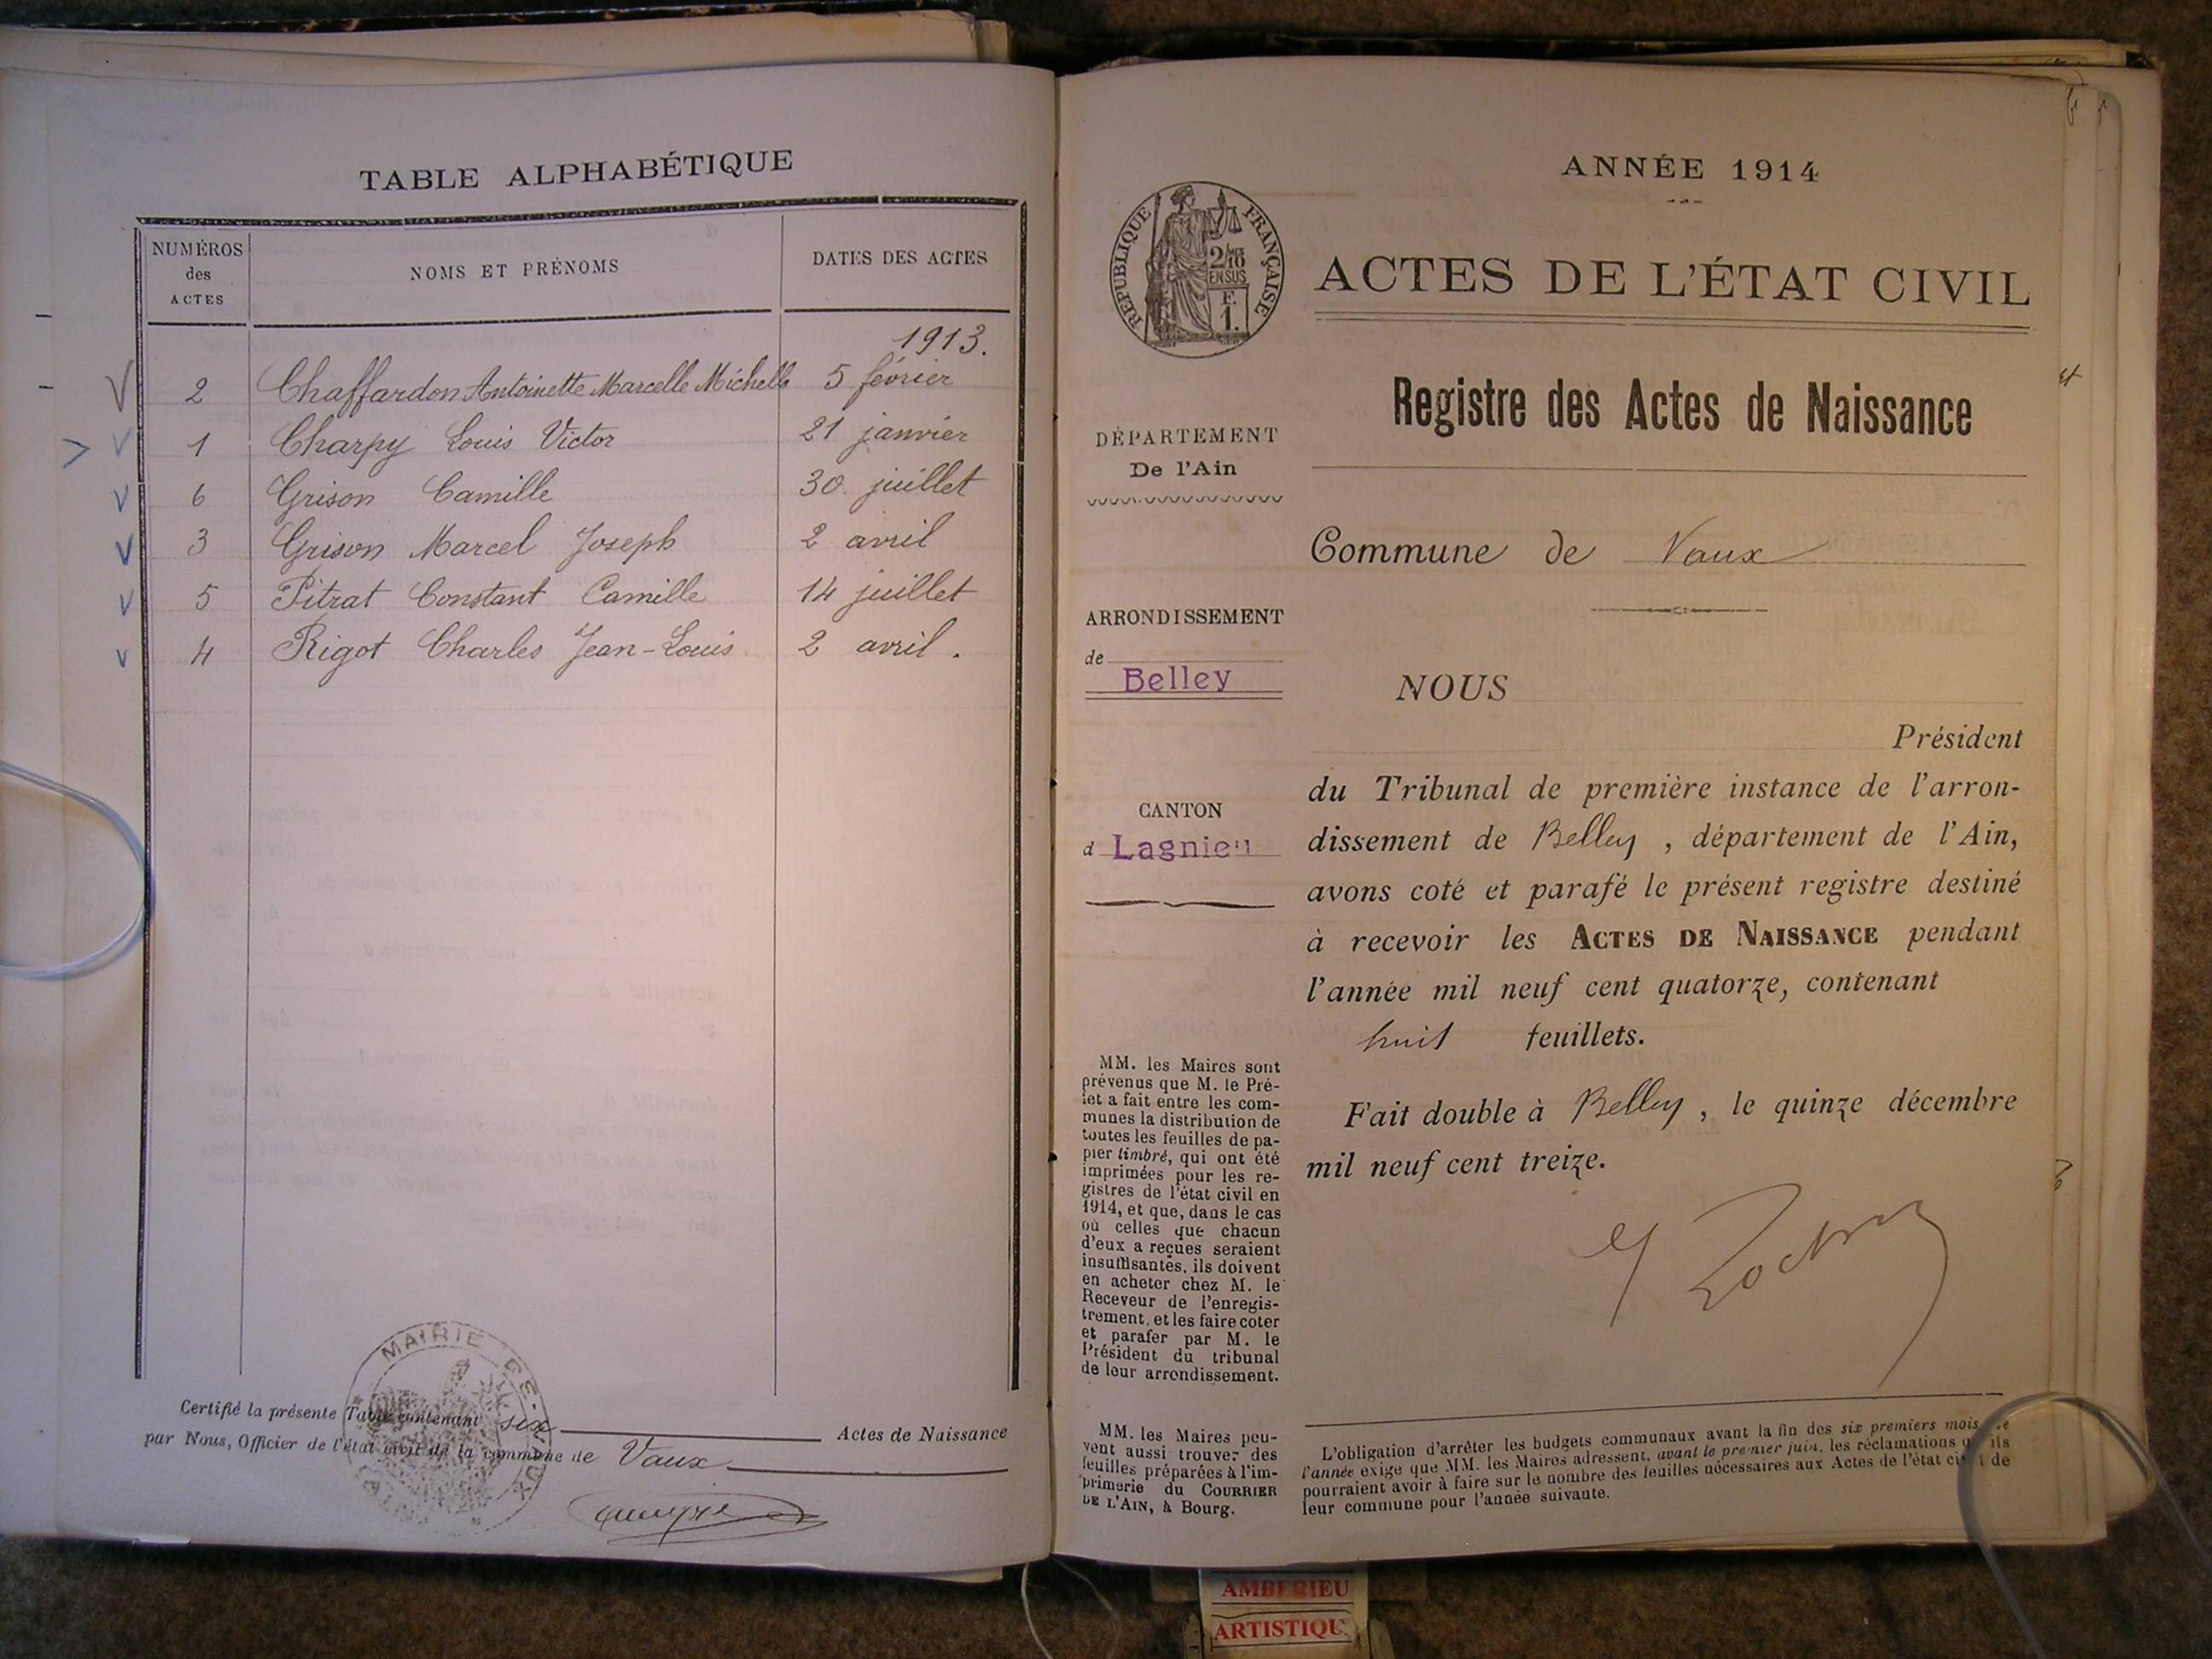 TABLE ALPHABÉTIQUE
NUMÉROS
des
ACTES
NOMS ET PRÉNOMS
DATES DES ACTES
1913.
2 Chaffardon Antoinette Marcelle Michelle 5 février
1 Charpy Louis Victor 21 janvier
6 Grison Camille 30 juillet
3 Grison Marcel Joseph 2 avril
5 Pitrat Constant Camille 14 juillet
4 Rigot Charles Jean-Louis 2 avril.
MAIRIE DE
Certifié la présente Table contenant six Actes de Naissance
par Nous, Officier de l'état civil de la commune de Vaux
ANNÉE 1914
RÉPUBLIQUE FRANÇAISE
2/10
EN SUS
F.
1.
ACTES DE L'ÉTAT CIVIL
Registre des Actes de Naissance
DÉPARTEMENT
De l'Ain
Commune de Vaux
ARRONDISSEMENT
de
Belley
NOUS
Président
du Tribunal de première instance de l'arron-
dissement de Belley, département de l'Ain,
avons coté et parafé le présent registre destiné
à recevoir les ACTES DE NAISSANCE pendant
l'année mil neuf cent quatorze, contenant
huit feuillets.
Fait double à Belley, le quinze décembre
mil neuf cent treize.
CANTON
d Lagnieu
MM. les Maires sont
prévenus que M. le Pré-
fet a fait entre les com-
munes la distribution de
toutes les feuilles de pa-
pier timbré, qui ont été
imprimées pour les re-
gistres de l'état civil en
1914, et que, dans le cas
où celles que chacun
d'eux a reçues seraient
insuffisantes, ils doivent
en acheter chez M. le
Receveur de l'enregis-
trement, et les faire coter
et parafer par M. le
Président du tribunal
de leur arrondissement.
MM. les Maires peu-
vent aussi trouver des
feuilles préparées à l'im-
primerie du COURRIER
DE L'AIN, à Bourg.
L'obligation d'arrêter les budgets communaux avant la fin des six premiers mois de
l'année exige que MM. les Maires adressent, avant le premier juin, les réclamations qu'ils
pourraient avoir à faire sur le nombre des feuilles nécessaires aux Actes de l'état civil de
leur commune pour l'année suivante.
AMBERIEU
ARTISTIQU